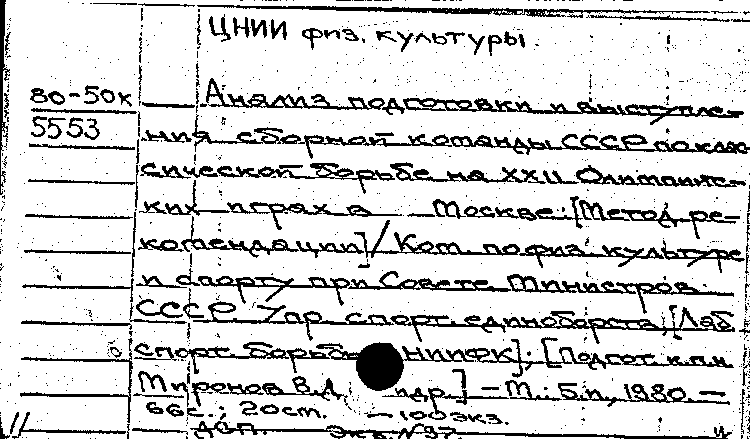 ЦНИИ физ. культуры.
80-50к Анализ подготовки и выступле-
5553 ния сборной команды СССР по клас
сической борьбе на XXII Олимпийс-
ких играх в Москве: [Метод. ре-
комендации] / Ком. по физ. культуре
и спорту при Совете Министров
СССР. Упр. спорт. единоборств; [Лаб.
спорт. борьбы НИИФК]; [Подгот. к.п.н
Миронов В.Д. и др.] – М.: Б.и., 1980. –
66с.; 20см. – 100экз.
11 ДСП. Экз. №97